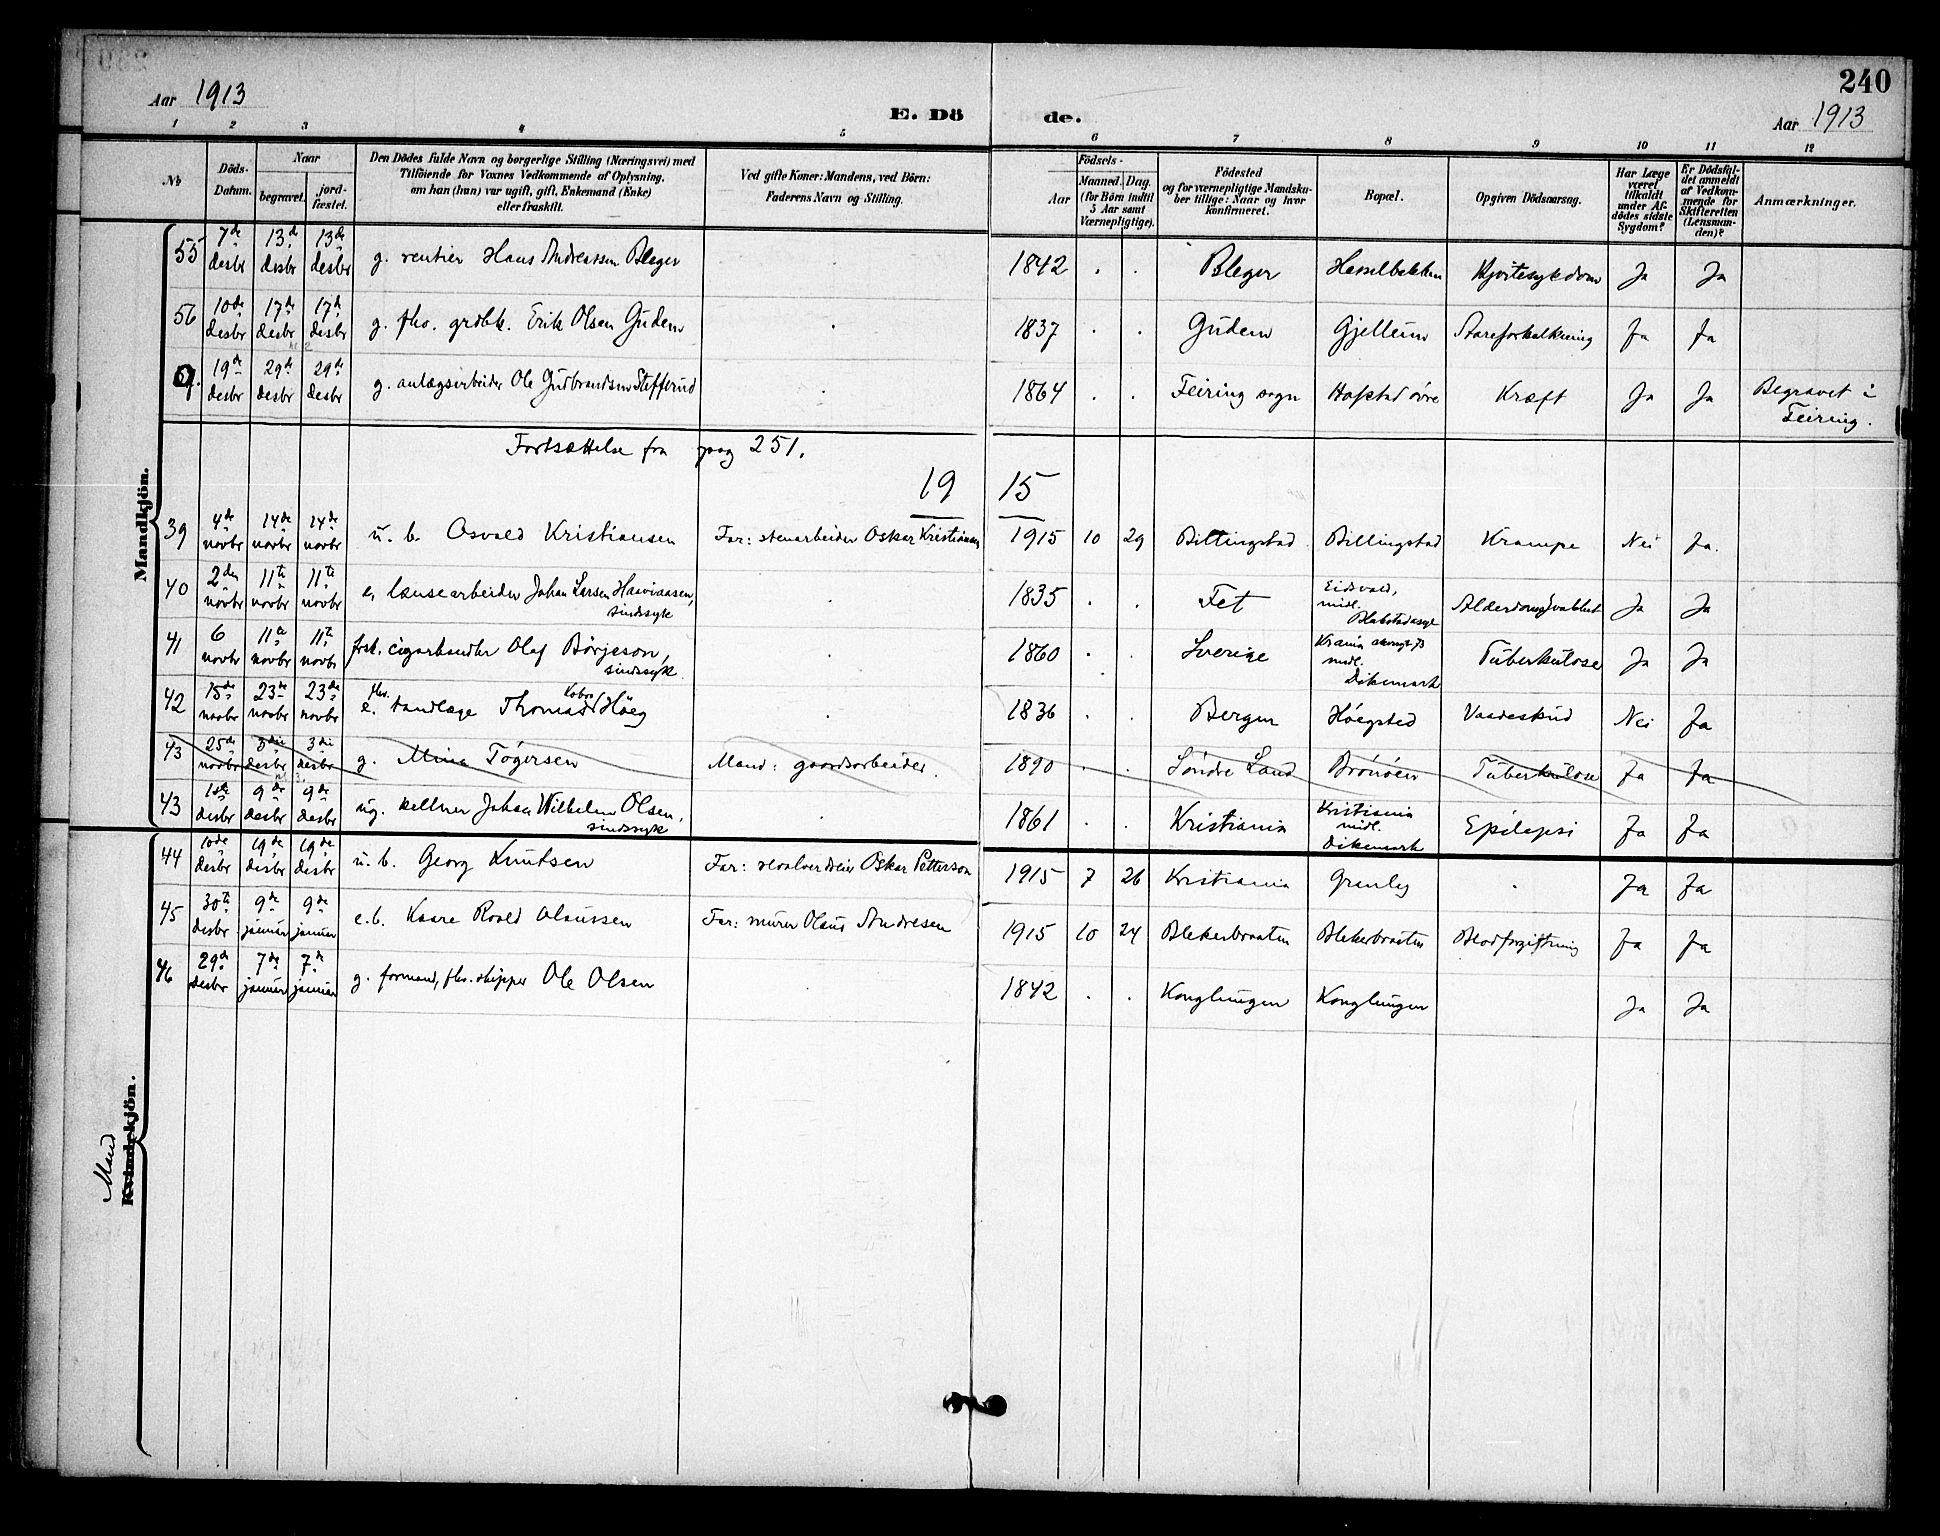 240
Aar 1913
E. Dö de.
Aar 1913
1 2 3 4 5 6 7 8 9 10 11 12
No
Döds-Datum.
Naar
begravet.
jordfæstet.
Den Dödes fulde Navn og borgerlige Stilling (Næringsvei) med
Tilföiende for Voxnes Vedkommende af Oplysning,
om han (hun) var ugift, gift, Enkemand (Enke)
eller fraskilt.
Ved gifte Koner: Mandens, ved Börn:
Faderens Navn og Stilling.
Födsels-
Aar
Maaned. Dag.
(for Börn indtil
5 Aar samt
Værnepligtige).
Födested
og for værnepligtige Mandska-
ber tillige: Naar og hvor
konfirmeret.
Bopæl.
Opgiven Dödsaarsag.
Har Læge
været
tilkaldt
under Af-
dödes sidste
Sygdom?
Er Dödsfal-
det anmeldt
af Vedkom-
mende for
Skifteretten
(Lensman-
den)?
Anmærkninger.
Mandkjön.
55 7de desbr 13de desbr 13de desbr g. rentier Hans Andreassen Bleger . 1842 . . Bleger Hasselbakken Hjertesykdom Ja Ja
56 10de desbr 17de desbr 17de desbr g. fho. grdbk. Erik Olsen Gudem . 1837 . . Gudem Gjellum Aareforkalkning Ja Ja
19de desbr 29de desbr 29de desbr g. anlægsarbeider Ole Gudbrandsen Stefferud . 1864 . . Feiring sogn Hofstad övre Kræft Ja Ja Begravet i
Feiring.
Fortsættelse fra pag 251.
19 15
39 4de novbr 14de novbr 14de novbr u. b. Osvald Kristiansen Far: stenarbeider Oskar Kristiansen 1915 10 29 Billingstad Billingstad Krampe Nei Ja.
40 2den novbr 11te novbr 11te novbr e. lænsearbeider Johan Larsen
sindssyk . 1835 . . Fet Eidsvold,
midl.
Blakstad asyl Ja Ja
41 6 novbr 11te novbr 11te novbr frsk. cigarhandler Olaf Börjeson,
sindssyk . 1860 . . Sverige
midl.
Dikemark Tuberkulose Ja Ja
42 15de novbr 23de novbr 23de novbr fhv.
e. tandlæge Thomas Höeg . 1836 . . Bergen Höegsted Vaadeskud Nei Ja
43 25de novbr 3die desbr 3die desbr g. Mina Tögersen Mand: gaardsarbeider. 1890 . . Söndre Land Brönöen Tuberkulose Ja Ja
43 1ste desbr 9de desbr 9de desbr ug. kellner Johan Wilhelm Olsen,
sindssyk . 1861 . . Kristiania Kristiania
midl.
Dikemark Epilepsi Ja Ja
44 10de desbr 19de desbr 19de desbr u. b. Georg Knutsen Far: revolverdreier Oskar Petterson 1915 7 26 Kristiania Granly . Ja Ja
45 30te desbr 9de januar 9de januar e.b. Kaare Roald Olaussen Far: murer Olaus Andresen 1915 10 24 Blekerbraaten Blekerbraaten Blodforgiftning Ja Ja
46 29de desbr 7de januar 7de januar g. formand, fhv. skipper Ole Olsen . 1842 . . Konglungen Konglungen Ja Ja
Mand
Kvindekjön.